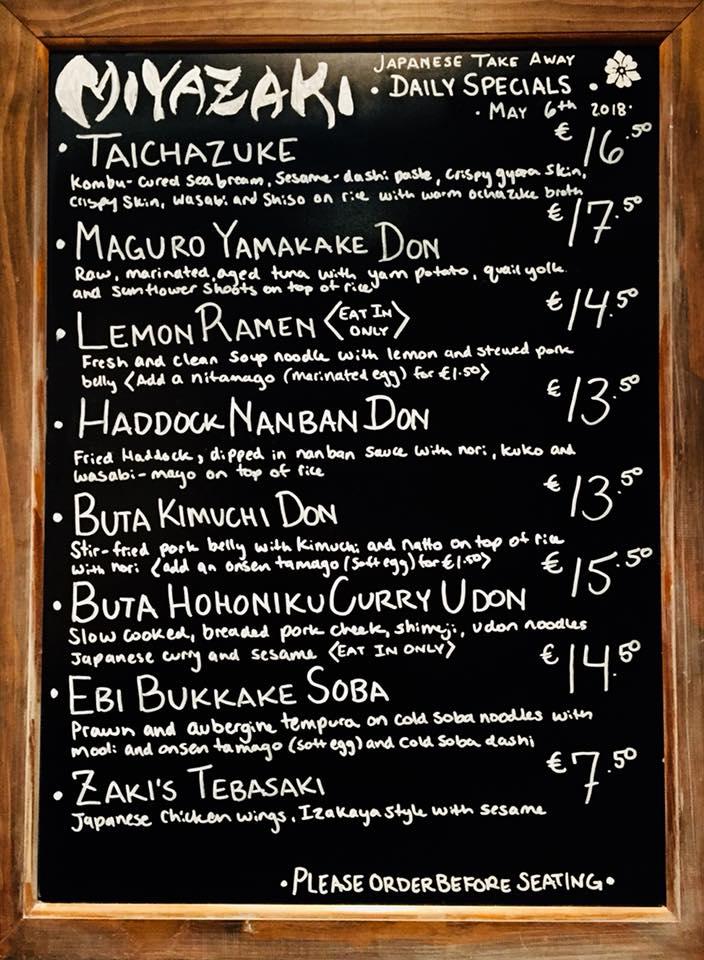 MIYAZAKI
JAPANESE TAKE AWAY
• DAILY SPECIALS •
• MAY 6th 2018 •
• TAICHAZUKE € 16.50
Kombu-cured sea bream, sesame-dashi paste, crispy gyoza skin,
crispy skin, wasabi and shiso on rice with warm ochazuke broth
• MAGURO YAMAKAKE DON € 17.50
Raw, marinated, aged tuna with yam potato, quail yolk
and sunflower shoots on top of rice
• LEMON RAMEN <EAT IN ONLY> € 14.50
Fresh and clean soup noodle with lemon and stewed pork
belly <Add a nitamago (marinated egg) for €1.50>
• HADDOCK NANBAN DON € 13.50
Fried Haddock, dipped in nanban sauce with nori, kuko and
wasabi-mayo on top of rice
• BUTA KIMUCHI DON € 13.50
Stir-fried pork belly with kimuchi and natto on top of rice
with nori <add an onsen tamago (soft egg) for €1.50>
• BUTA HOHONIKU CURRY UDON € 15.50
Slow cooked, breaded pork cheek, shimeji, udon noodles
Japanese curry and sesame <EAT IN ONLY>
• EBI BUKKAKE SOBA € 14.50
Prawn and aubergine tempura on cold soba noodles with
mooli and onsen tamago (soft egg) and cold soba dashi
• ZAKI'S TEBASAKI € 7.50
Japanese chicken wings, Izakaya style with sesame
• PLEASE ORDER BEFORE SEATING •